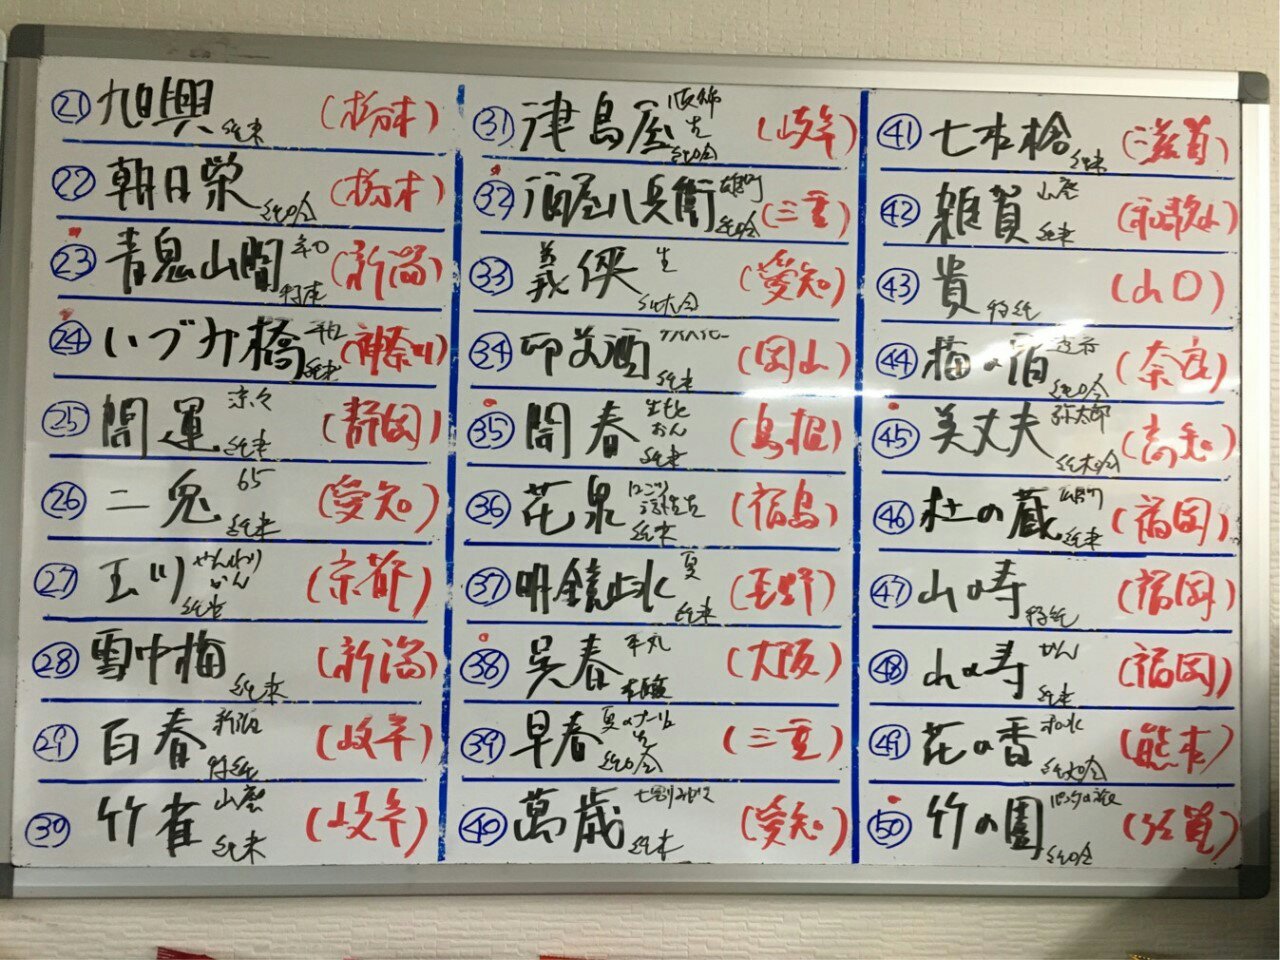 ㉑ 旭興 純米 (栃木)
㉒ 朝日栄 純吟 (栃木)
㉓ 青鬼山間 辛口 特純 (新潟)
㉔ いづみ橋 純米 (神奈川)
㉕ 開運 涼々 純米 (静岡)
㉖ 二兎 65 純米 (愛知)
㉗ 玉川 (京都)
㉘ 雪中梅 純米 (新潟)
㉙ 百春 特純 (岐阜)
㉚ 竹雀 山廃 純米 (岐阜)
㉛ 津島屋 純吟 (岐阜)
㉜ 酒屋八兵衛 雄町 純吟 (三重)
㉝ 義侠 生 純大吟 (愛知)
㉞ 純米 (岡山)
㉟ 開春 生もと おん 純米 (島根)
㊱ 花泉 にごり 活性生 純米 (福島)
㊲ 明鏡止水 夏 純米 (長野)
㊳ 呉春 本醸 (大阪)
㊴ 早春 生 純吟 (三重)
㊵ 萬歳 七割みがき 純米 (愛知)
㊶ 七本槍 純米 (滋賀)
㊷ 雑賀 山廃 純米 (和歌山)
㊸ 貴 特純 (山口)
㊹ 梅の宿 純吟 (奈良)
㊺ 美丈夫 弥太郎 純米吟 (高知)
㊻ 杜の蔵 雄町 純米 (福岡)
㊼ 山の寿 特純 (福岡)
㊽ 山の寿 純米 (福岡)
㊾ 花の香 和水 純大吟 (熊本)
㊿ 竹の園 純吟 (佐賀)